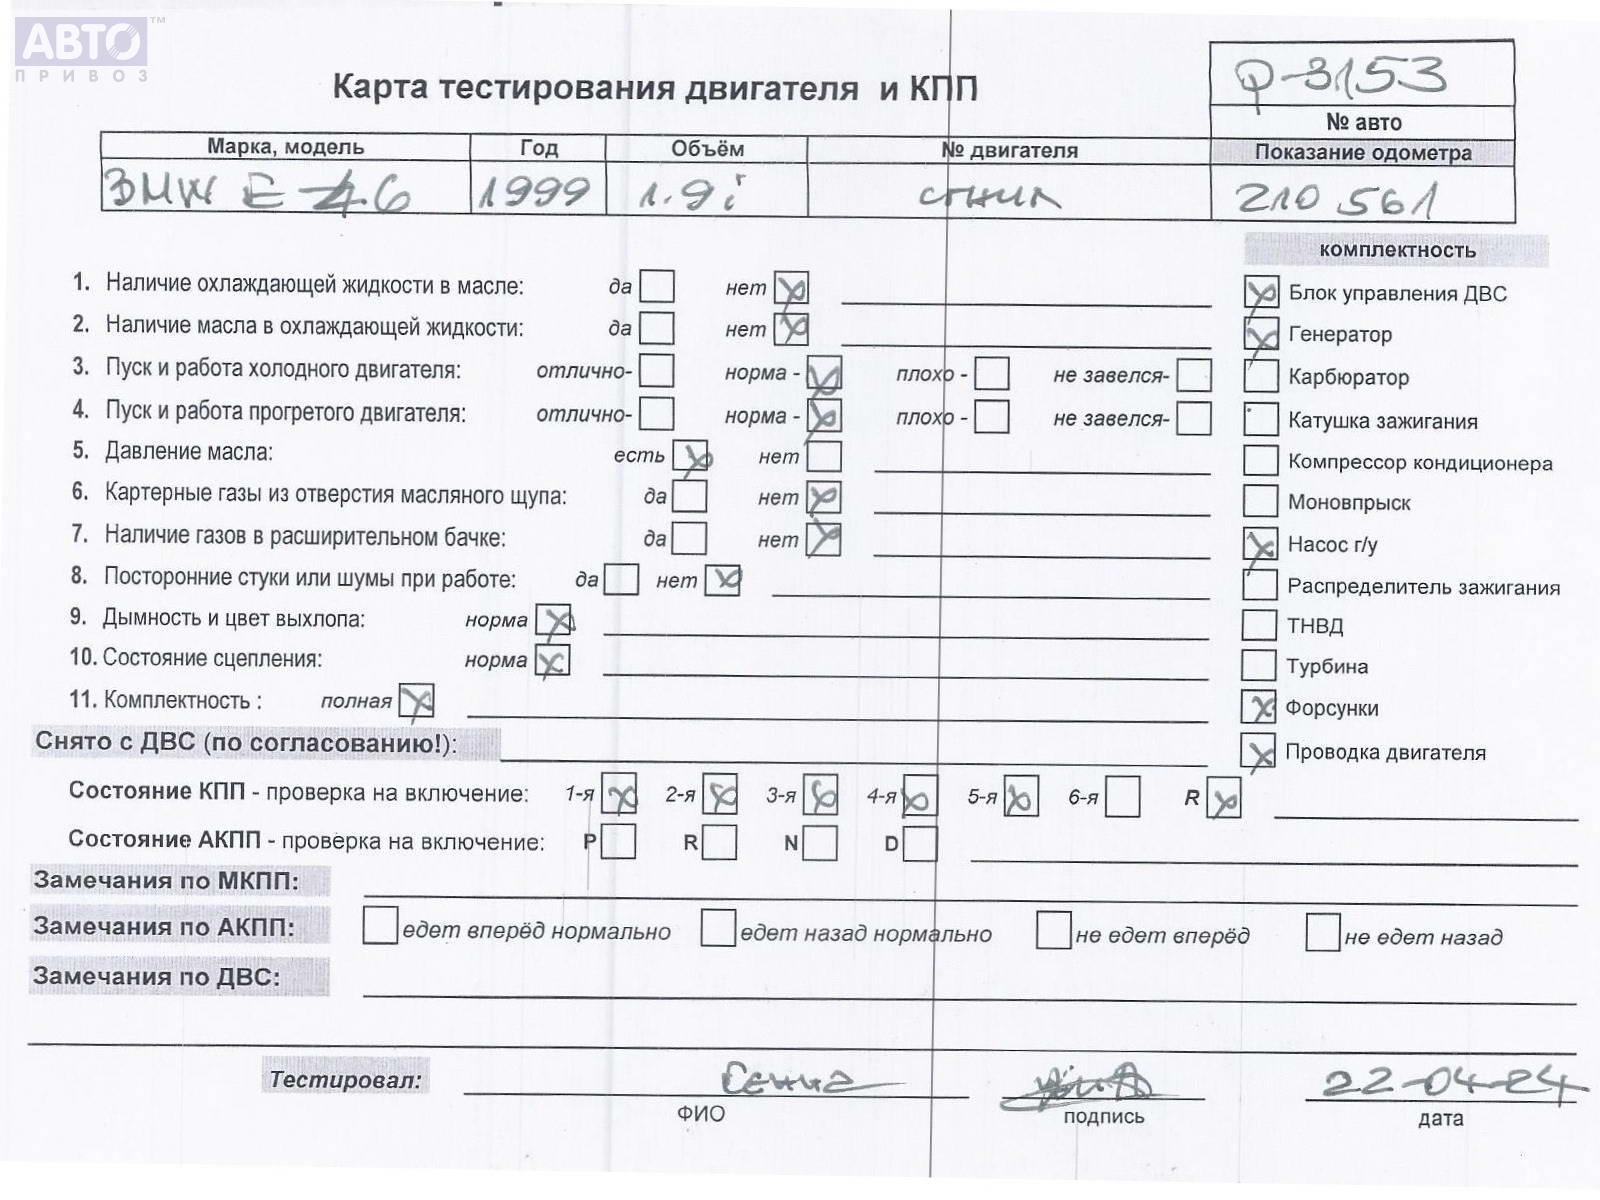 АВТО™
ПРИВОЗ
Карта тестирования двигателя и КПП
Ф-3153
№ авто
Марка, модель Год Объём № двигателя Показание одометра
BMW E-46 1999 1.9i 210 561
комплектность
1. Наличие охлаждающей жидкости в масле: да нет
Блок управления ДВС
2. Наличие масла в охлаждающей жидкости: да нет
Генератор
3. Пуск и работа холодного двигателя: отлично- норма - плохо - не завелся-
Карбюратор
4. Пуск и работа прогретого двигателя: отлично- норма - плохо - не завелся-
Катушка зажигания
5. Давление масла: есть нет
Компрессор кондиционера
6. Картерные газы из отверстия масляного щупа: да нет
Моновпрыск
7. Наличие газов в расширительном бачке: да нет
Насос г/у
8. Посторонние стуки или шумы при работе: да нет
Распределитель зажигания
9. Дымность и цвет выхлопа: норма
ТНВД
10. Состояние сцепления: норма
Турбина
11. Комплектность : полная
Форсунки
Снято с ДВС (по согласованию!):
Проводка двигателя
Состояние КПП - проверка на включение: 1-я 2-я 3-я 4-я 5-я 6-я R
Состояние АКПП - проверка на включение: P R N D
Замечания по МКПП:
Замечания по АКПП: едет вперёд нормально едет назад нормально не едет вперёд не едет назад
Замечания по ДВС:
Тестировал: 22-04-24
ФИО подпись дата